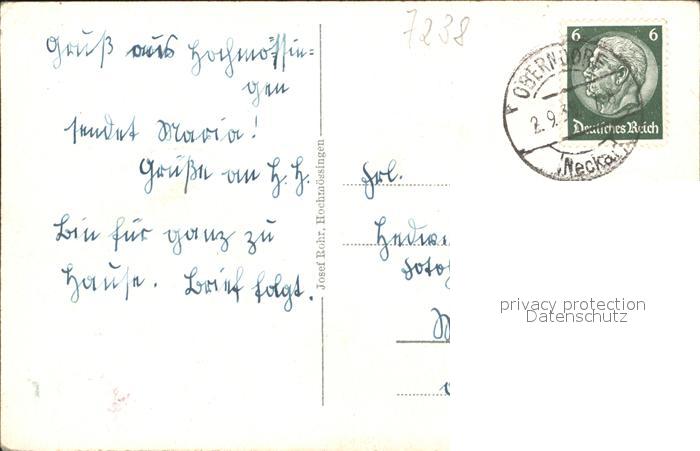 7238
6 6
OBERNDORF
2.9.3
Deutsches Reich
(Neckar)
Gruß aus Hochmössin=
gen
sendet Maria!
Grüße an H. H.
Bin für ganz zu
Hause. Brief folgt.
Josef Rohr, Hochmössingen
Frl.
Hedw
Foto
privacy protection
Datenschutz